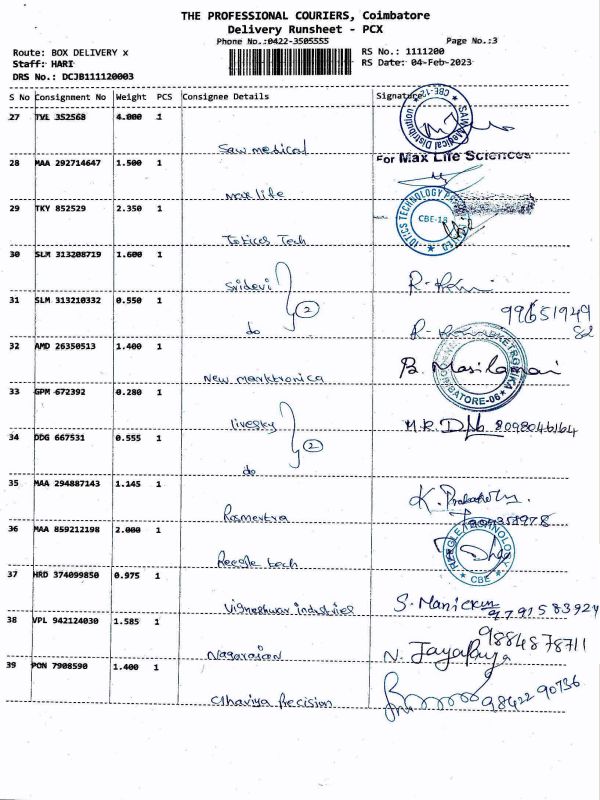 THE PROFESSIONAL COURIERS, Coimbatore
Delivery Runsheet - PCX
Phone No.:0422-3505555
Page No.:3
Route: BOX DELIVERY x
RS No.: 1111200
Staff: HARI
RS Date: 04-Feb-2023
DRS No.: DCJB111120003
S No Consignment No Weight PCS Consignee Details Signature
27 TVL 352568 4.000 1
Saw medical
28 MAA 292714647 1.500 1
For Max Life Sciences
max life
29 TKY 852529 2.350 1
CBE-18
Iotics Tech
30 SLM 313208719 1.600 1
Sridevi
31 SLM 313210332 0.550 1
2
do
32 AMD 26350513 1.400 1
B. Masilamai
New marktronica
33 GPM 672392 0.280 1
livesky
8098046164
34 DDG 667531 0.555 1
2
do
35 MAA 294887143 1.145 1
36 MAA 859212198 2.000 1
CBE
Reegle tech
37 HRD 374099850 0.975 1
Vigneshwar industries
S. Manickm
9791583924
38 VPL 942124030 1.585 1
9884878711
Nagarajan
N. Jayapriya
39 PON 7908590 1.400 1
9842290736